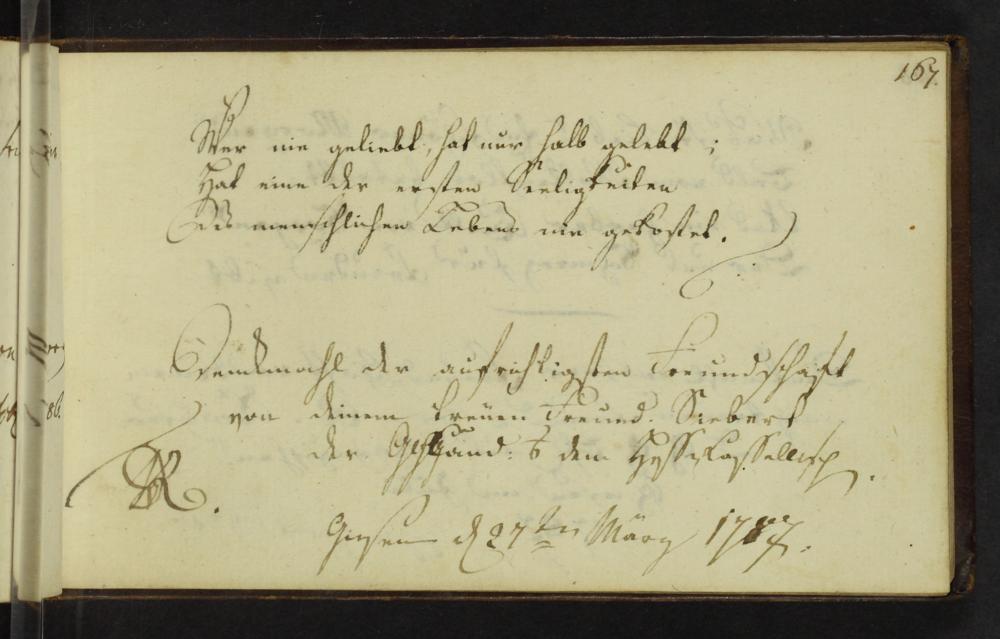 167.
Wer nie geliebt, hat nur halb gelebt;
Hat eine der ersten Seeligkeiten
Des menschlichen Lebens nie gekostet.
Denckmahl der aufrichtigsten Freundschaft
von deinem treuen Freund. Siebert
der aus dem Hess Cassellisch.
Giesen d 27ten März 1787.